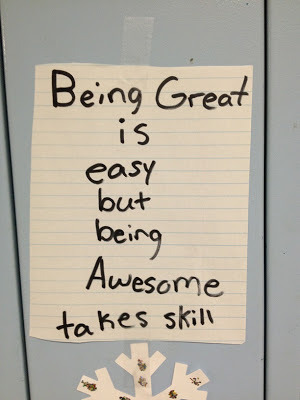 Being Great
is
easy
but
being
Awesome
takes skill